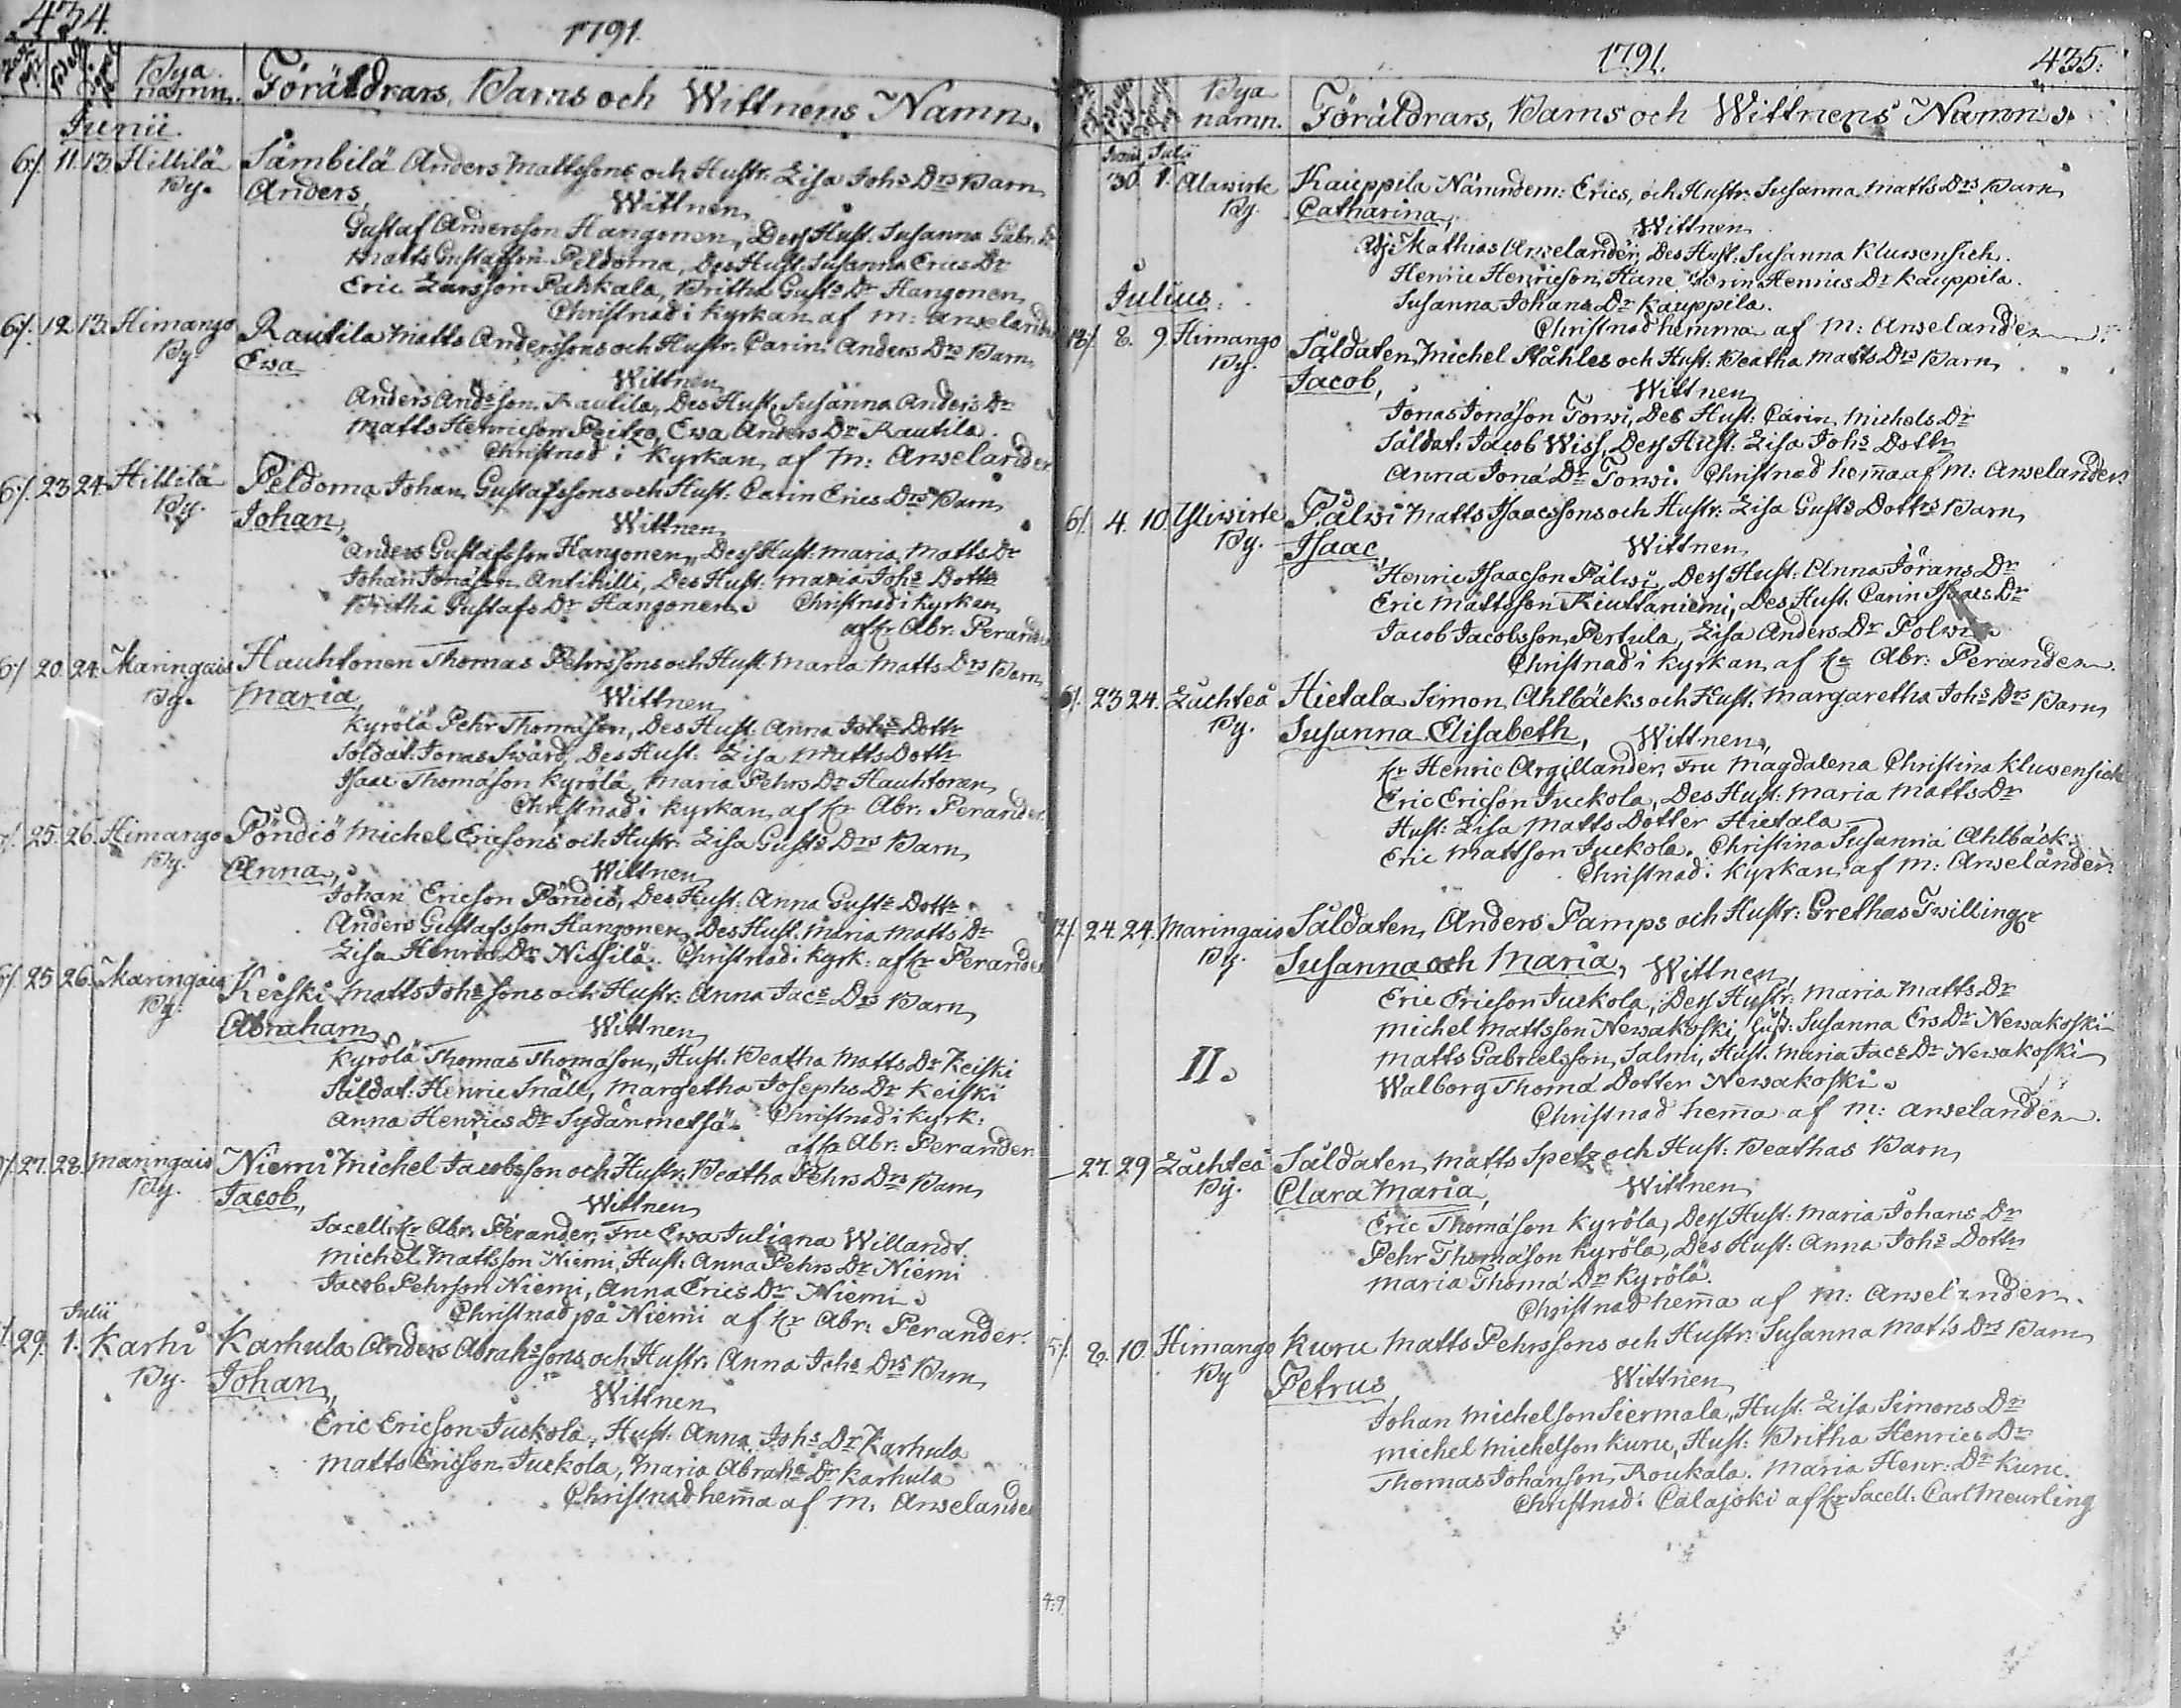 434.
1791.
Bya namn.
Föräldrars, Barns och Wittnens Namn.
Junii.
6/. 11. 13. Hillilä By. Såmbilä Anders Mattssons och Hustr: Lisa Johs Drs Barn
Anders, Wittnen
Gustaf Andersson Hangonen, Dess Hust. Susanna Gabr. Dr
Matts Gustafsson Peldoma, Des Hust: Susanna Erics Dr
Eric Larsson Pahkala, Britha Gusts Dr Hangonen
Christnad i Kyrkan af M: Anselander
6/. 12. 13. Himango By Rautila Matts Anderssons och Hustr. Carin Anders Drs Barn
Ewa Wittnen
Anders Andsson Rautila, Des Hust, Susanna Anders Dr
Matts Henricson Peitzo, Ewa Anders Dr Rautila.
Christnad i Kyrkan af M: Anselander
6/. 23 24. Hillilä By. Peldoma Johan Gustafssons och Hust: Carin Erics Drs Barn
Johan, Wittnen
Anders Gustafsson Hangonen, Dess Hust: Maria Matts Dr
Johan Jonasson Antihilli, Des Hust: Maria Johs Dottr
Britha Gustafs Dr Hangonen. Christnad i Kyrkan
af Hr Abr: Perander
6/ 20. 24. Maringais By. Hauhtonen Thomas Pehrssons och Hust: Maria Matts Drs Barn
Maria, Wittnen
Kyrölä Pehr Thomasson, Des Hust: Anna Johs Dottr
Soldat: Jonas Swärd, Des Hust: Lisa Matts Dottr
Isaac Thomason Kyrölä, Maria Pehrs Dr Hauhtonen
Christnad i Kyrkan af Hr Abr: Perander
25. 26. Himango By. Pöndiö Michel Ericsons och Hustr. Lisa Gusts Drs Barn
Anna, Wittnen
Johan Ericson Pöndiö, Des Hust: Anna Gusts Dottr
Anders Gustafsson Hangonen, Des Hust. Maria Matts Dr
Lisa Henrics Dr Nissilä. Christnad i Kyrk: af Hr Perander
25 26. Maringais By. Keiski Matts Johssons och Hustr: Anna Jacs Drs Barn
Abraham Wittnen
Kyrölä Thomas Thomasson, Hust. Beatha Matts Dr Keiski
Såldat: Henric Snäll, Margetha Josephs Dr Keiski
Anna Henrics Dr Sydänmetsä. Christnad i Kyrk:
af Hr Abr: Perander
27. 28. Maringais By. Niemi Michel Jacobsson och Hustr: Beatha Pehrs Drs Barn
Jacob, Wittnen
Sacell: Hr Abr: Perander, Fru Ewa Juliana Willandt.
Michel Mattsson Niemi, Hust: Anna Pehrs Dr Niemi
Jacob Pehrsson Niemi, Anna Erics Dr Niemi.
Christnad på Niemi af Hr Abr: Perander.
Julii
29. 1. Karhi By. Karhula Anders Abrahssons och Hustr: Anna Johs Drs Barn
Johan, Wittnen
Eric Ericson Juckola, Hust: Anna Johs Dr Karhula
Matts Ericson Juckola, Maria Abrahs Dr Karhula
Christnad hem̄a af M: Anselander
1791.
435.
Bya namn.
Föräldrars, Barns och Wittnens Namn
Junii Julii
30. 1. Alawirte By. Kauppila Nämndem: Erics, och Hustr: Susanna Matts Drs Barn
Catharina, Wittnen
Mathias Anselander, Des Hust: Susanna Kluwensich.
Henric Henricson Hane Carin Henrics Dr Kauppila.
Susanna Johans Dr Kauppila.
Julius. Christnad hemma af M: Anselander
8. 9. Himango By. Såldaten, Michel Ståhles och Hust: Beatha Matts Drs Barn
Jacob, Wittnen
Jonas Jonason Torwi, Des Hust: Carin Michels Dr
Såldat: Jacob Wiss, Dess Hust: Lisa Johs Dottr
Anna Jona Dr Torwi. Christnad hem̄a af M: Anselander
6/. 4. 10. Yliwirte By. Pålwi Matts Isaacssons och Hustr: Lisa Gusts Dottrs Barn
Isaac, Wittnen
Henric Isaacson Pålwi, Dess Hust: Anna Jörans Dr
Eric Mattsson Kiuttaniemi, Des Hust. Carin Isaacs Dr
Jacob Jacobsson Pertula, Lisa Anders Dr
Christnad i Kyrkan af Hr Abr: Perander
6/. 23 24. Luchteå By. Hietala Simon Ahlbäcks och Hust. Margaretha Johs Drs Barn
Susanna Elisabeth, Wittnen
Hr Henric Argillander, Fru Magdalena Christina Kluwensich
Eric Ericson Juckola, Des Hust: Maria Matts Dr
Hust: Lisa Matts Dotter Hietala
Eric Mattson Juckola. Christina Susanna Ahlbäck.
Christnad i Kyrkan af M: Anselander
24. 24. Maringais By. Såldaten, Anders Pamps och Hustr: Grethas Twillingr
Susanna och Maria, Wittnen
Eric Ericson Juckola, Dess Hustr: Maria Matts Dr
Michel Mattsson Newakoski, Hust: Susanna Ers Dr Newakoski
Matts Gabrielsson, Salmi, Hust. Maria Jacs Dr Newakoski
II. Walborg Thoma Dotter Newakoski.
Christnad hem̄a af M: Anselander
27. 29 Lächteå By. Såldaten Matts Spets och Hust: Beathas Barn
Clara Maria, Wittnen
Eric Thomason Kyrölä, Dess Hust: Maria Johans Dr
Pehr Thomason Kyrölä, Des Hust: Anna Johs Dottr
Maria Thoma Dr Kyrölä.
Christnad hem̄a af M: Anselander.
5/. 8. 10. Himango By Kuru Matts Pehrssons och Hustr: Susanna Matts Drs Barn
Petrus Wittnen
Johan Michelson Siermala, Hust: Lisa Simons Dr
Michel Michelson Kuru, Hust: Britha Henrics Dr
Thomas Johanson, Roukala. Maria Henr: Dr Kuru.
Christnad i Calajoki af Hr Sacell: Carl Meurling